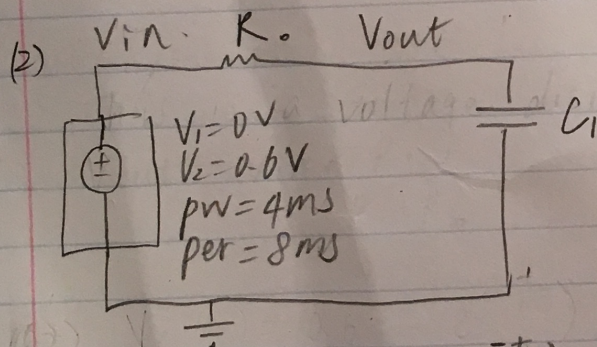 (2) Vin. R. Vout
V1=0V
C1
V2=0.6V
pw=4ms
per=8ms